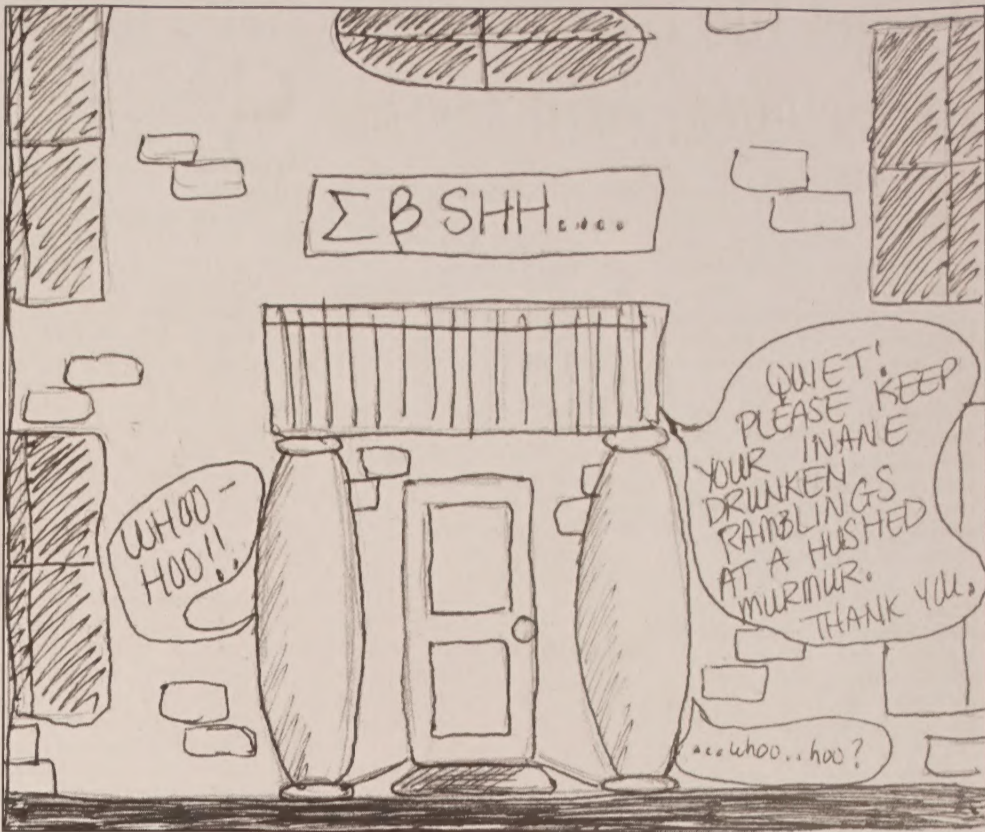 Σ β SHH....
WHOO-
HOO!!
QUIET!
PLEASE KEEP
YOUR INANE
DRUNKEN
RAMBLINGS
AT A HUSHED
MURMUR.
THANK YOU.
...whoo..hoo?